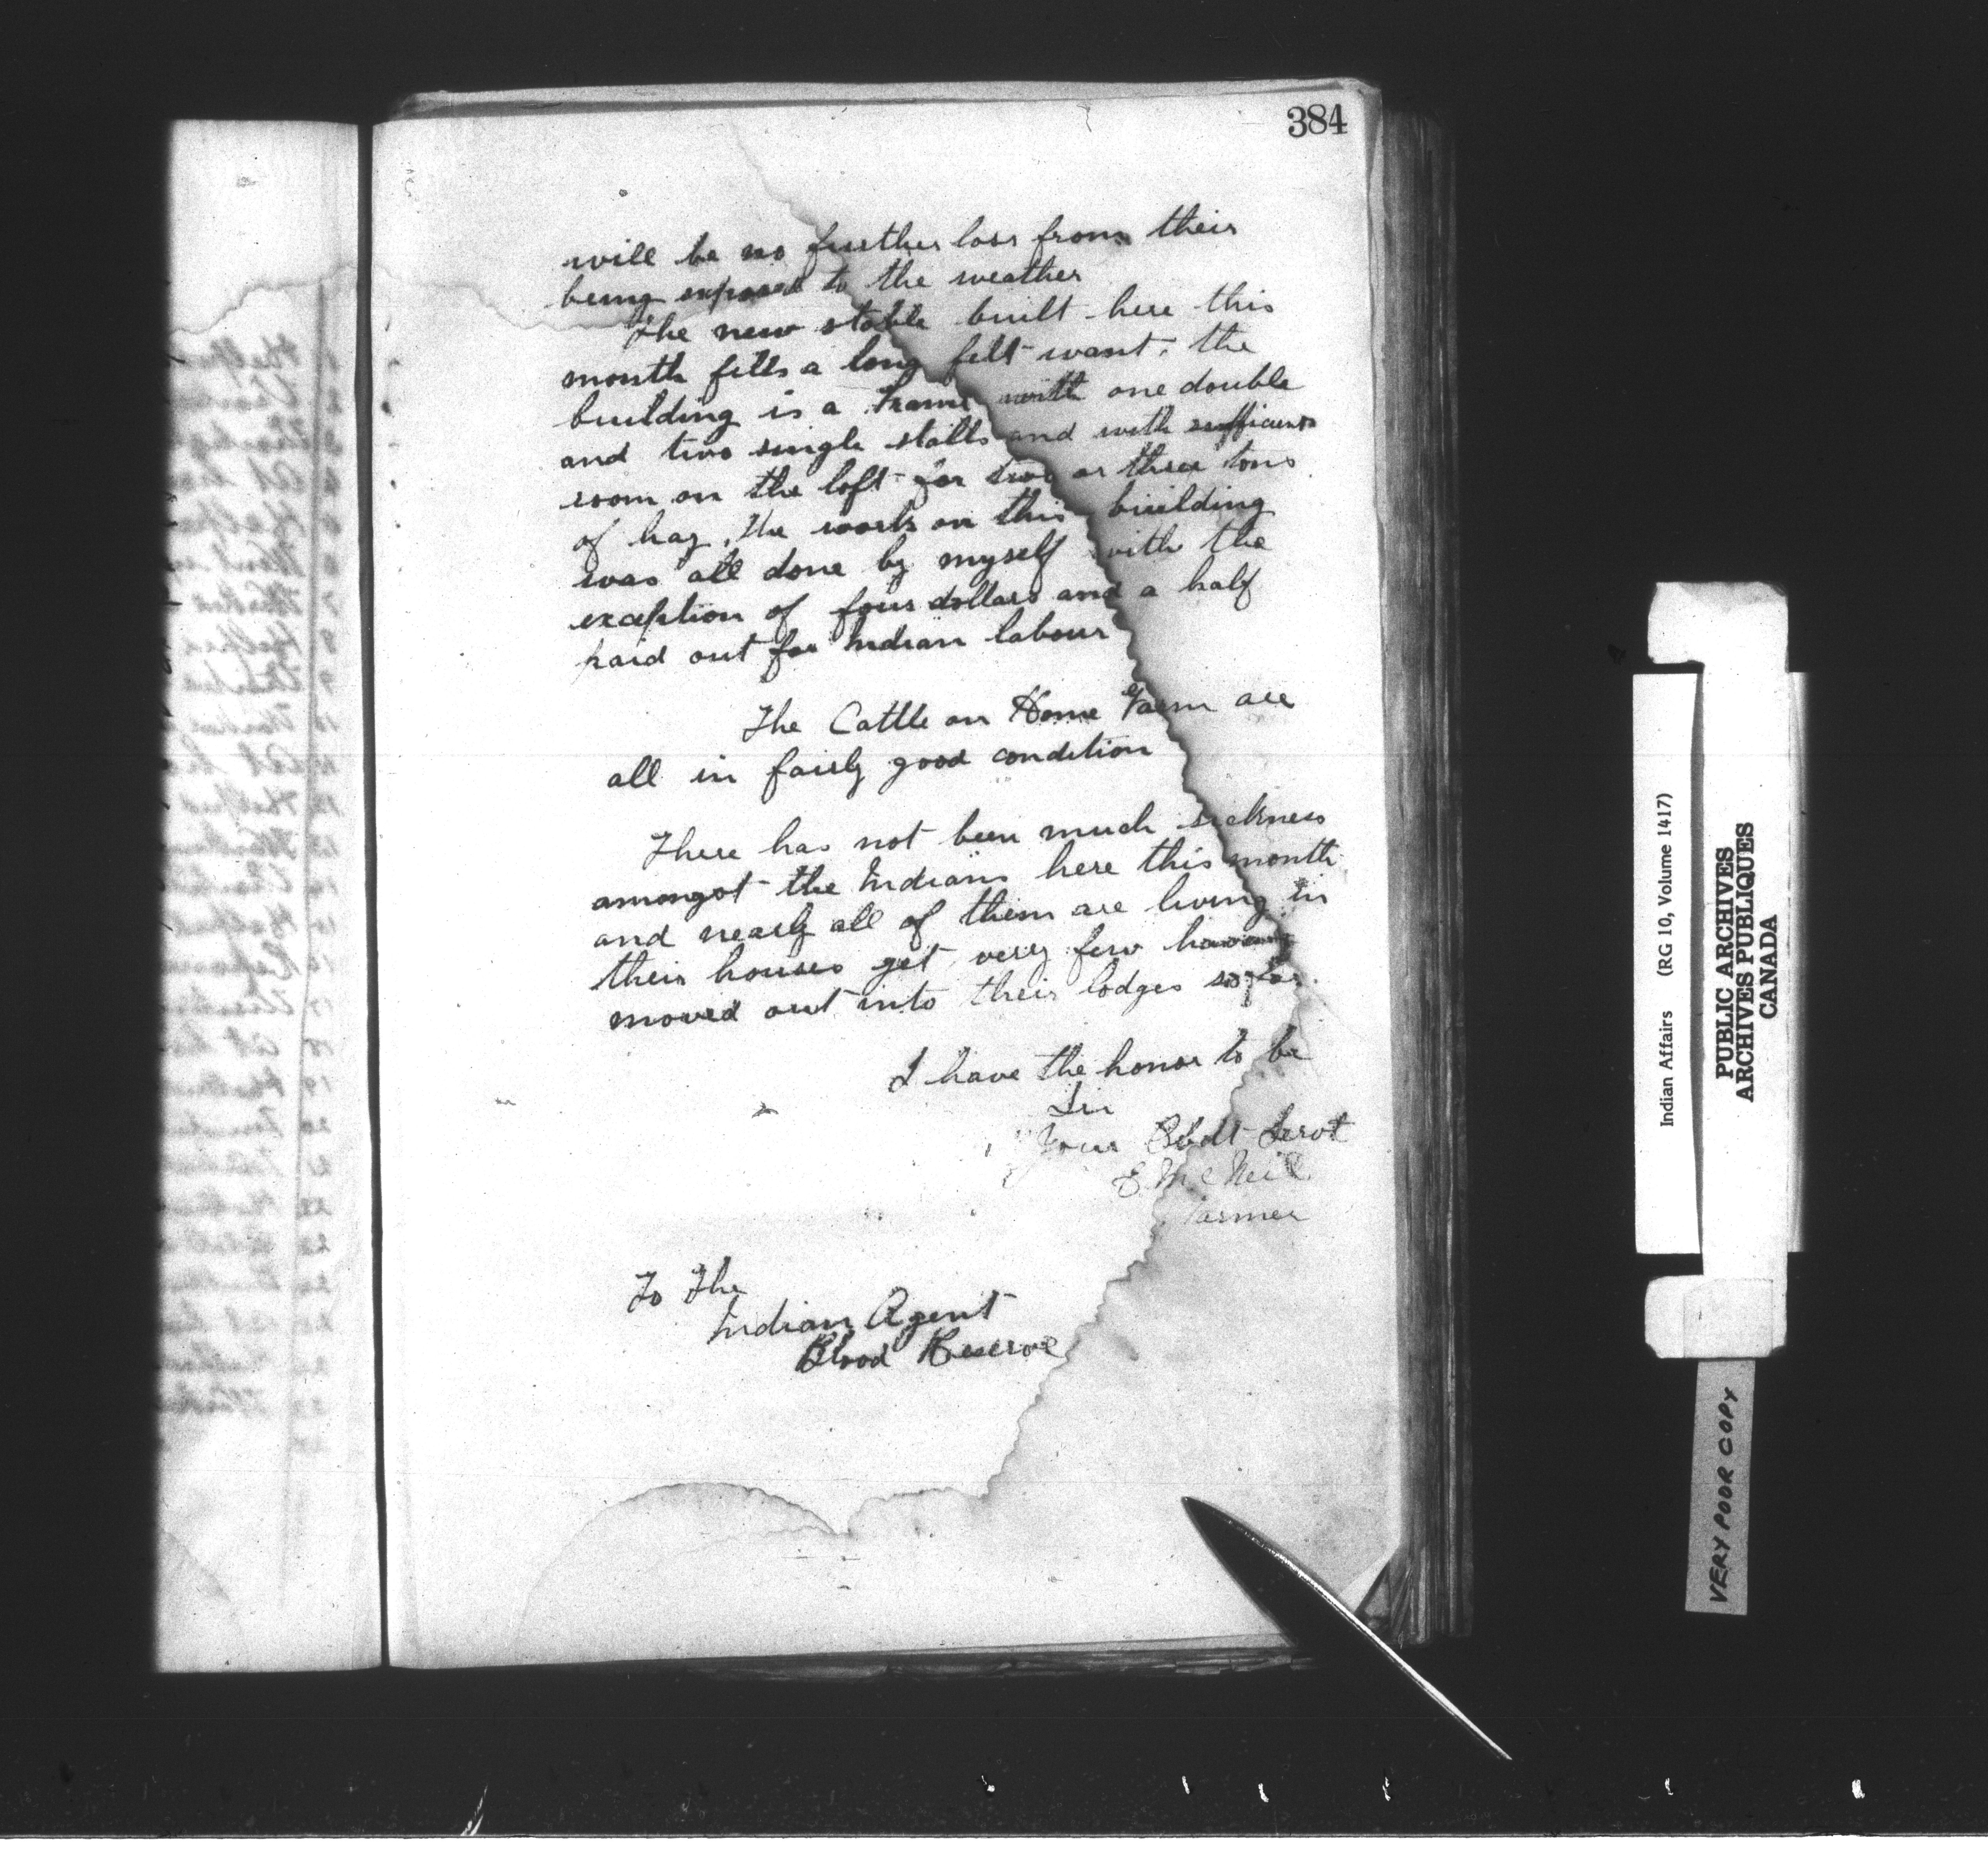 384
will be no further loss from their
being exposed to the weather
The new stable built here this
month fills a long felt want, the
building is a frame with one double
and two single stalls and with sufficient
room on the loft for two or three tons
of hay, The work on this building
was all done by myself with the
exception of four dollars and a half
paid out for Indian labour
The Cattle on Home Farm are
all in fairly good condition
There has not been much sickness
amongst the Indians here this month
and nearly all of them are living in
their houses yet, very few having
moved out into their lodges so far.
I have the honor to be
Sir
Your Obdt Servt
E. McNeil
Farmer
To The
Indian Agent
Blood Reserve
Indian Affairs (RG 10, Volume 1417)
PUBLIC ARCHIVES
ARCHIVES PUBLIQUES
CANADA
VERY POOR COPY